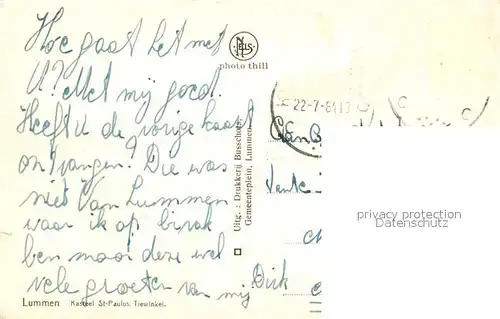 Hoe gaat het met
U? Met mij goed.
Heeft U de vorige kaart
ontvangen? Die was
niet Van Lummen
waar ik op bivak
ben maar deze wel
vele groeten van mij
Dirk
NELS
photo thill
22-7-64
Uitg.: Drukkerij Busschots,
Gemeenteplein, Lummen
Lummen Kasteel St-Paulus, Tiewinkel.
privacy protection
Datenschutz